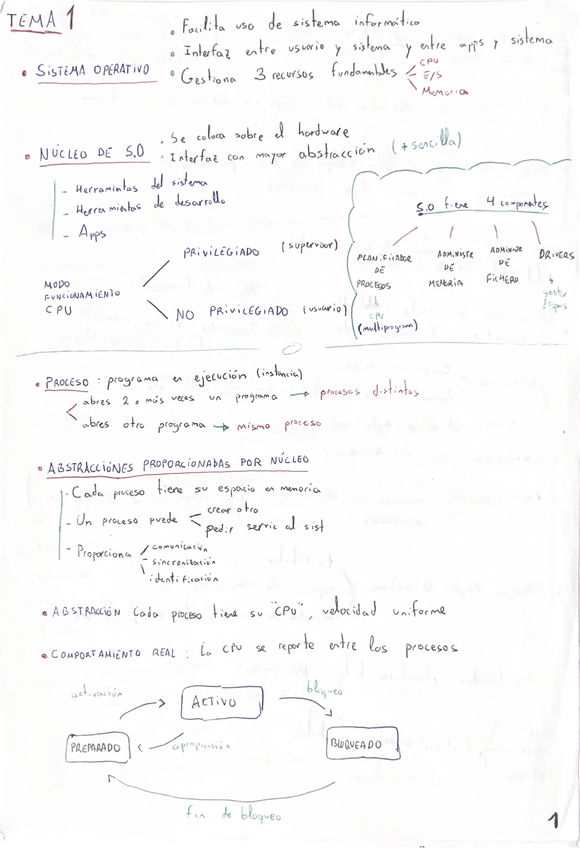 TEMA 1
• Facilita uso de sistema informático
• Interfaz entre usuario y sistema y entre apps y sistema
• SISTEMA OPERATIVO • Gestiona 3 recursos fundamentales
CPU
E/S
Memoria
• NÚCLEO DE S.O
• Se coloca sobre el hardware
• Interfaz con mayor abstracción (+ sencilla)
- Herramientas del sistema
- Herramientas de desarrollo
- Apps
MODO FUNCIONAMIENTO CPU
PRIVILEGIADO (supervisor)
NO PRIVILEGIADO (usuario)
S.O tiene 4 componentes
PLANIFICADOR DE PROCESOS
CPU
(multiprogram)
ADMINISTR DE MEMORIA
ADMINISTR DE FICHERO
DRIVERS
• PROCESO : programa en ejecución (instancia)
abres 2 o más veces un programa → procesos distintos
abres otro programa → mismo proceso
• ABSTRACCIÓNES PROPORCIONADAS POR NÚCLEO
- Cada proceso tiene su espacio en memoria
- Un proceso puede
crear otro
pedir servic al sist
- Proporciona
comunicación
sincronización
identificación
• ABSTRACCIÓN Cada proceso tiene su "CPU", velocidad uniforme
• COMPORTAMIENTO REAL : La CPU se reporte entre los procesos
activación
ACTIVO
bloqueo
PREPARADO
apropiación
BLOQUEADO
fin de bloqueo
1